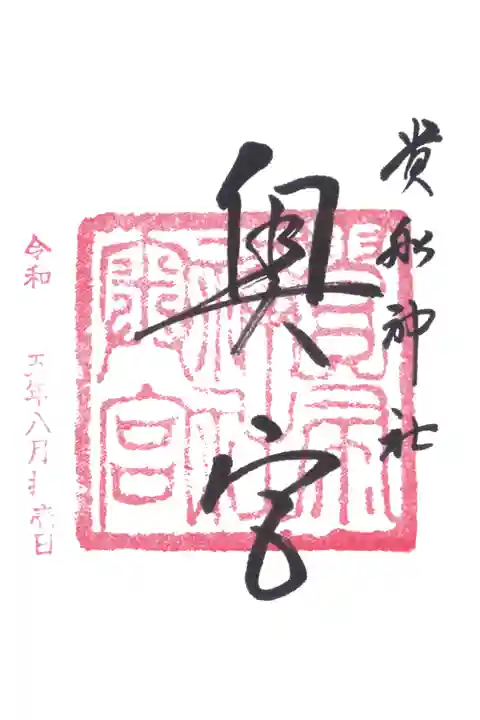 貴船神社
奥宮
貴布禰神社奥宮
令和 五年八月十六日